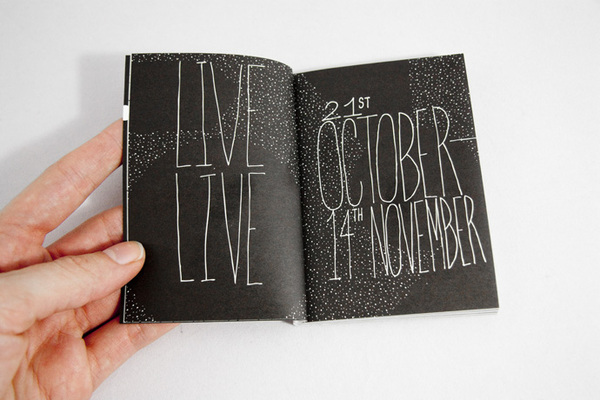 LIVE
LIVE
21ST
OCTOBER—
14TH NOVEMBER